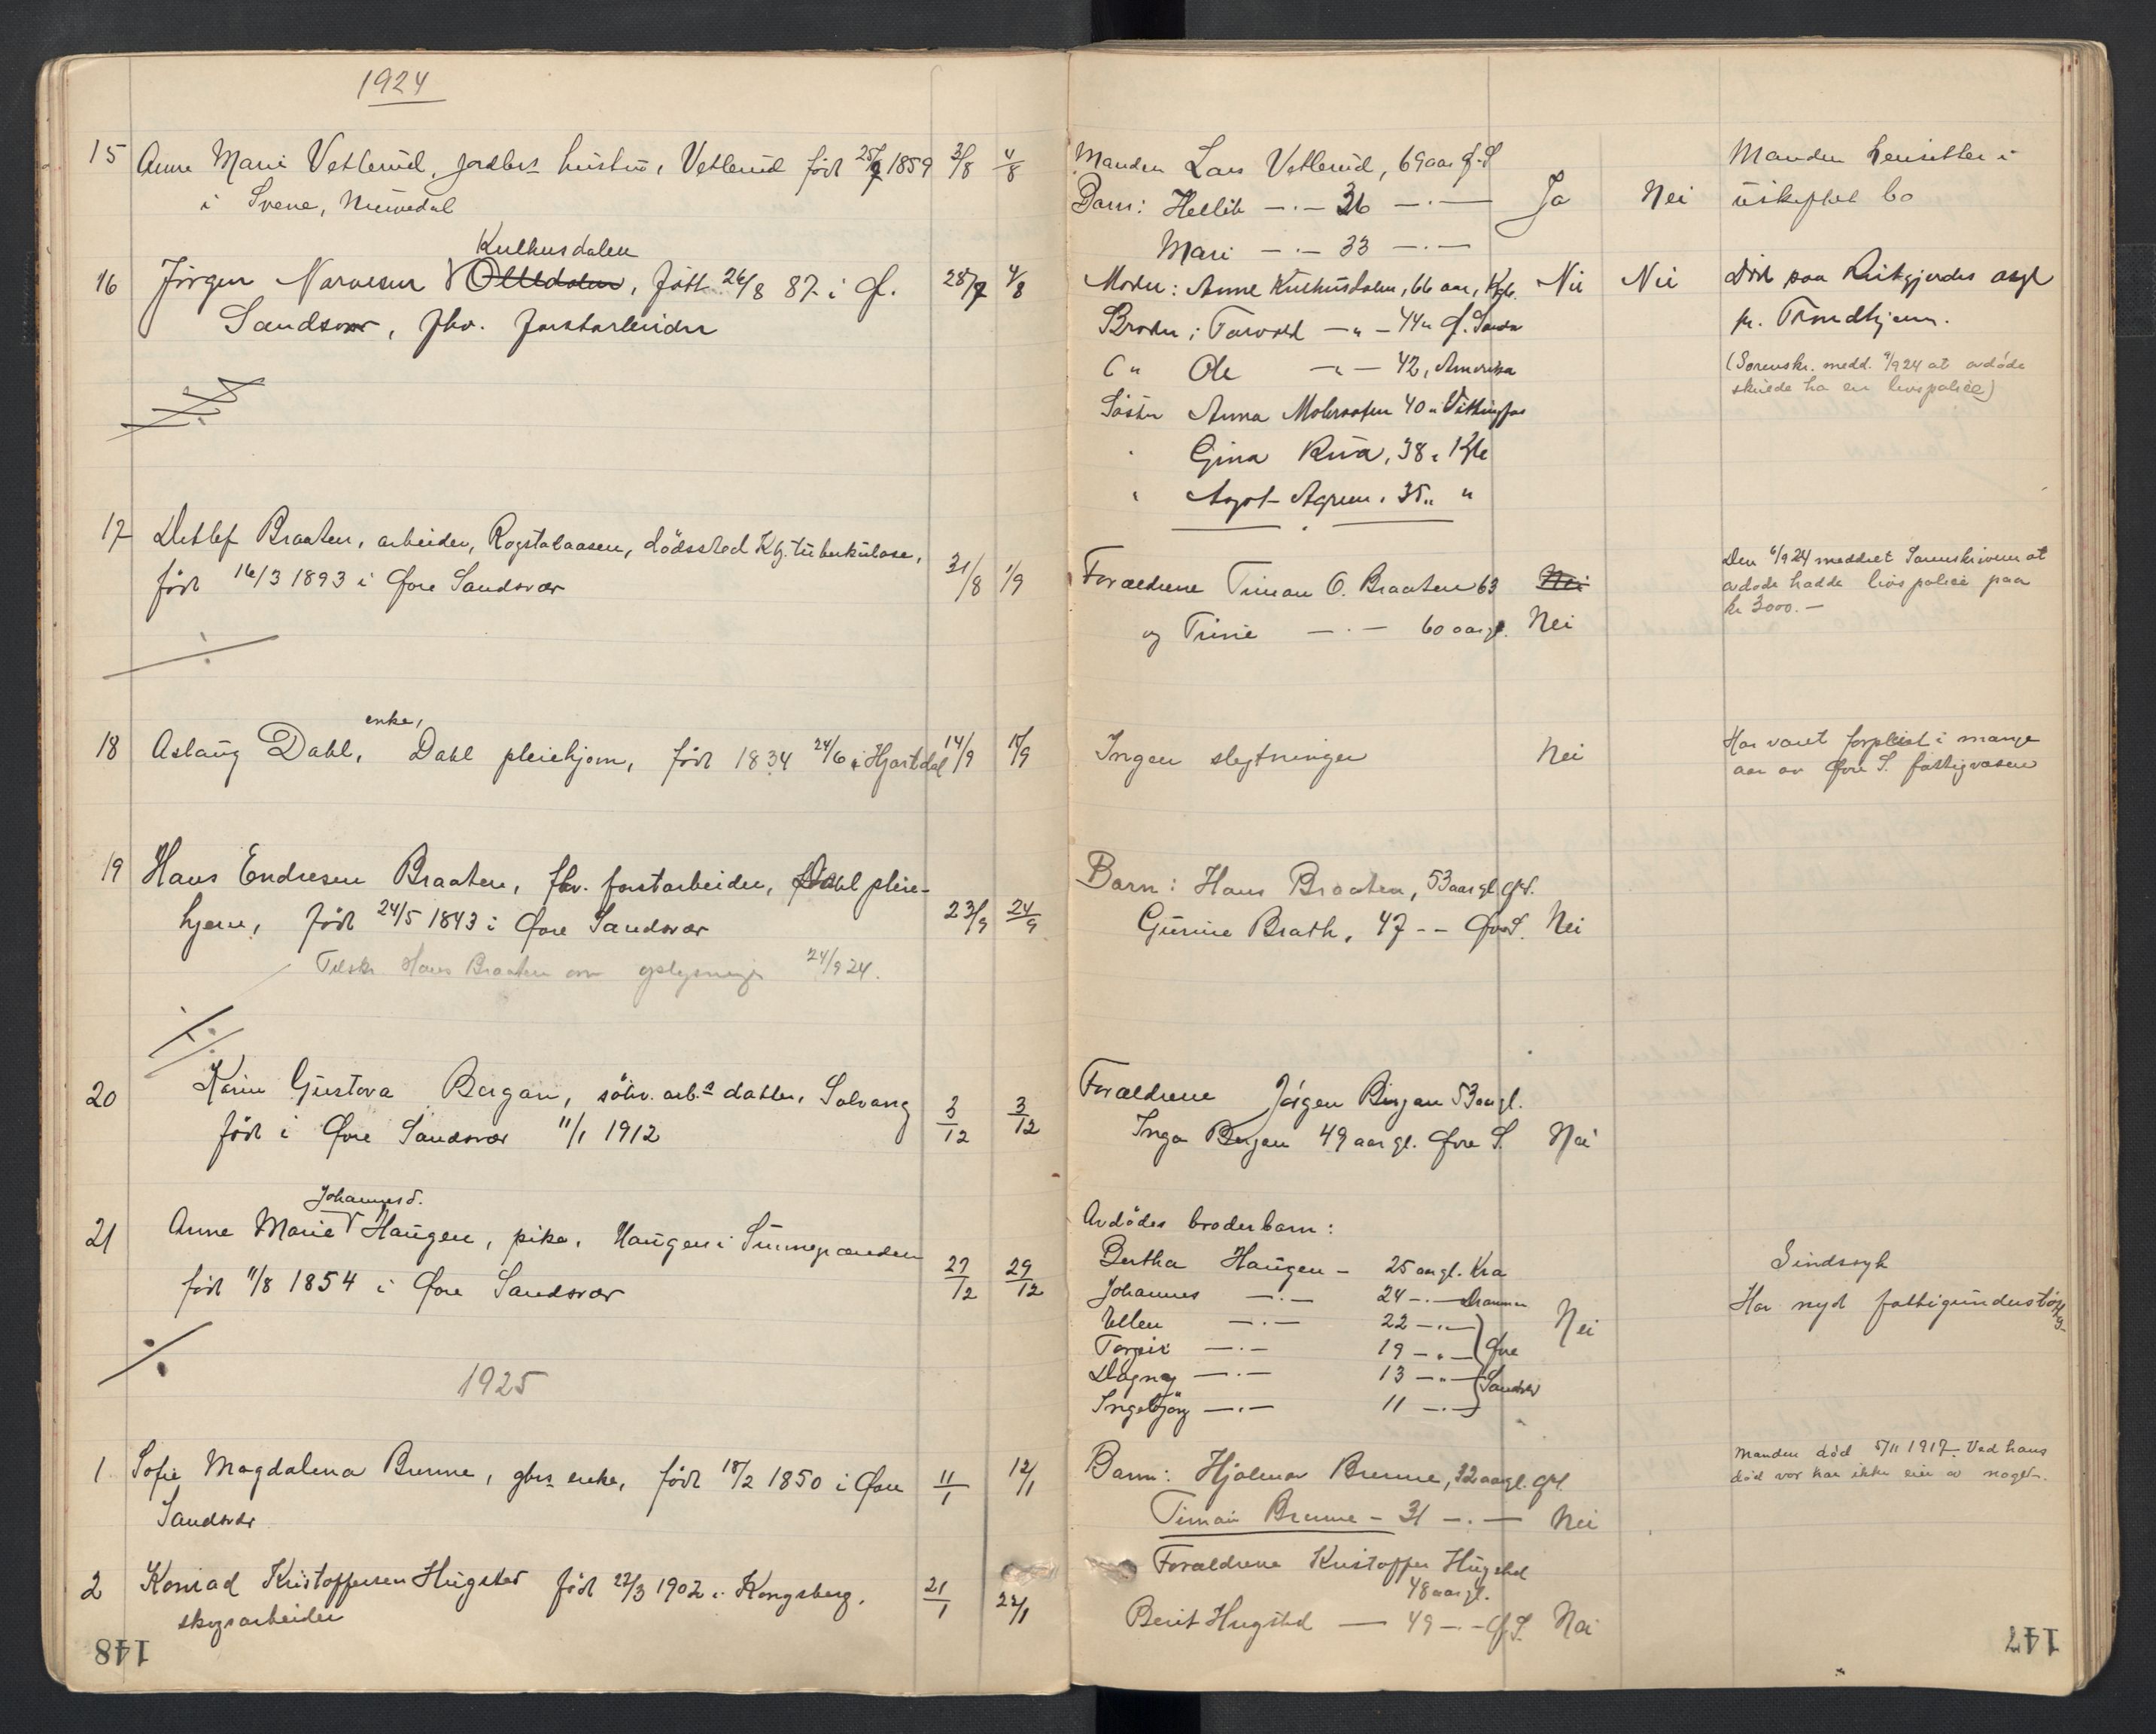 1924
15 Anne Marie Vetlerud, jordbrs hustru, Vetlerud født 25/7 1859 3/8 4/8
i Svene, Numedal
Kulhusdalen
16 Jörgen Narvesen Olledalen, født 26/8 87 i Ø. 28/7 4/8
Sandsvær, fhv. forstarbeider
17 Detlef Braaten, arbeider, Rogstadaasen, dödssted Kbg. tuberkulose,
født 16/3 1893 i Øvre Sandsvær 31/8 1/9
enke,
18 Aslaug Dahl, Dahl pleiehjem, født 1834 24/6 i Hjartdal 14/9 15/9
19 Hans Endresen Braaten, fhv. forstarbeider, Dahl pleie-
hjem, født 24/5 1843 i Øvre Sandsvær 23/9 24/9
Tilskr. Hans Braaten om oplysninger 24/9 24.
20 Karin Gustava Bergan, sölv. arb.s datter, Solvang
født i Øvre Sandsvær 11/1 1912 3/12 3/12
Johannesd.
21 Anne Marie Haugen, pike, Haugen i
født 11/8 1854 i Øvre Sandsvær 27/12 29/12
1925
1 Sofie Magdalena Brunne, gbrs enke, født 18/2 1850 i Øvre 11/1 12/1
Sandsvær
2 Konrad Kristoffersen Hugsted født 22/3 1902 i Kongsberg, 21/1 22/1
skogsarbeider
148
Manden Lars Vetlerud, 69 aar Ø. S
Barn: Hellik —.— 36 —.— Ja Nei
Mari —.— 33 —.—
Manden hensitter i
uskiftet bo
Moder: Anne Kulhusdalen, 66 aar, Kgb. Nei Nei
Broder: Torvald —"— 44 " Ø. Sandsv
" Ole —"— 42, Amerika
Söster Anna Mobraaten 40 " Vittingfos
Gina Rua, 38 " Kgb
" Agot Agren, 35 " "
Död paa Reitgjerdet asyl
pr. Trondhjem.
(Sorenskr. medd. 9/9 24 at avdöde
skulde ha en livspolice)
Forældrene Timan O. Braaten 63 Nei
og Trine —.— 60 aar gl. Nei
Den 6/9 24 meddelt Sorenskriveren at
avdöde hadde livspolice paa
kr 3000.—
Ingen slegtninger Nei
Har været forpleiet i mange
aar av Øvre S. fattigvæsen
Barn: Hans Braaten, 53 aar gl ØS.
Gunine Brath, 47 -- Øvre S. Nei
Forældrene Jörgen Bergan 53 aar gl.
Inga Bergan 49 aar gl. Øvre S. Nei
Avdödes broderbarn:
Bertha Haugen — 25 aar gl. Kra
Johannes —.— 24 —.— Drammen
Ellen —.— 22 —.— Nei
Torgeir —.— 19 —.— Øvre
Dagny —.— 13 —.— Sandsvær
Ingebjörg —.— 11 —.—
Sindssyk
Har nydt fattigunderstöttelse
Barn: Hjalmar Brunne, 32 aar gl. ØS.
Timan Brunne — 31 —.— Nei
Manden död 5/11 1917. Ved hans
död var han ikke eier av noget.
Forældrene Kristoffer Hugsted
48 aar gl.
Berit Hugsted — 49 — - Ø. S. Nei
147